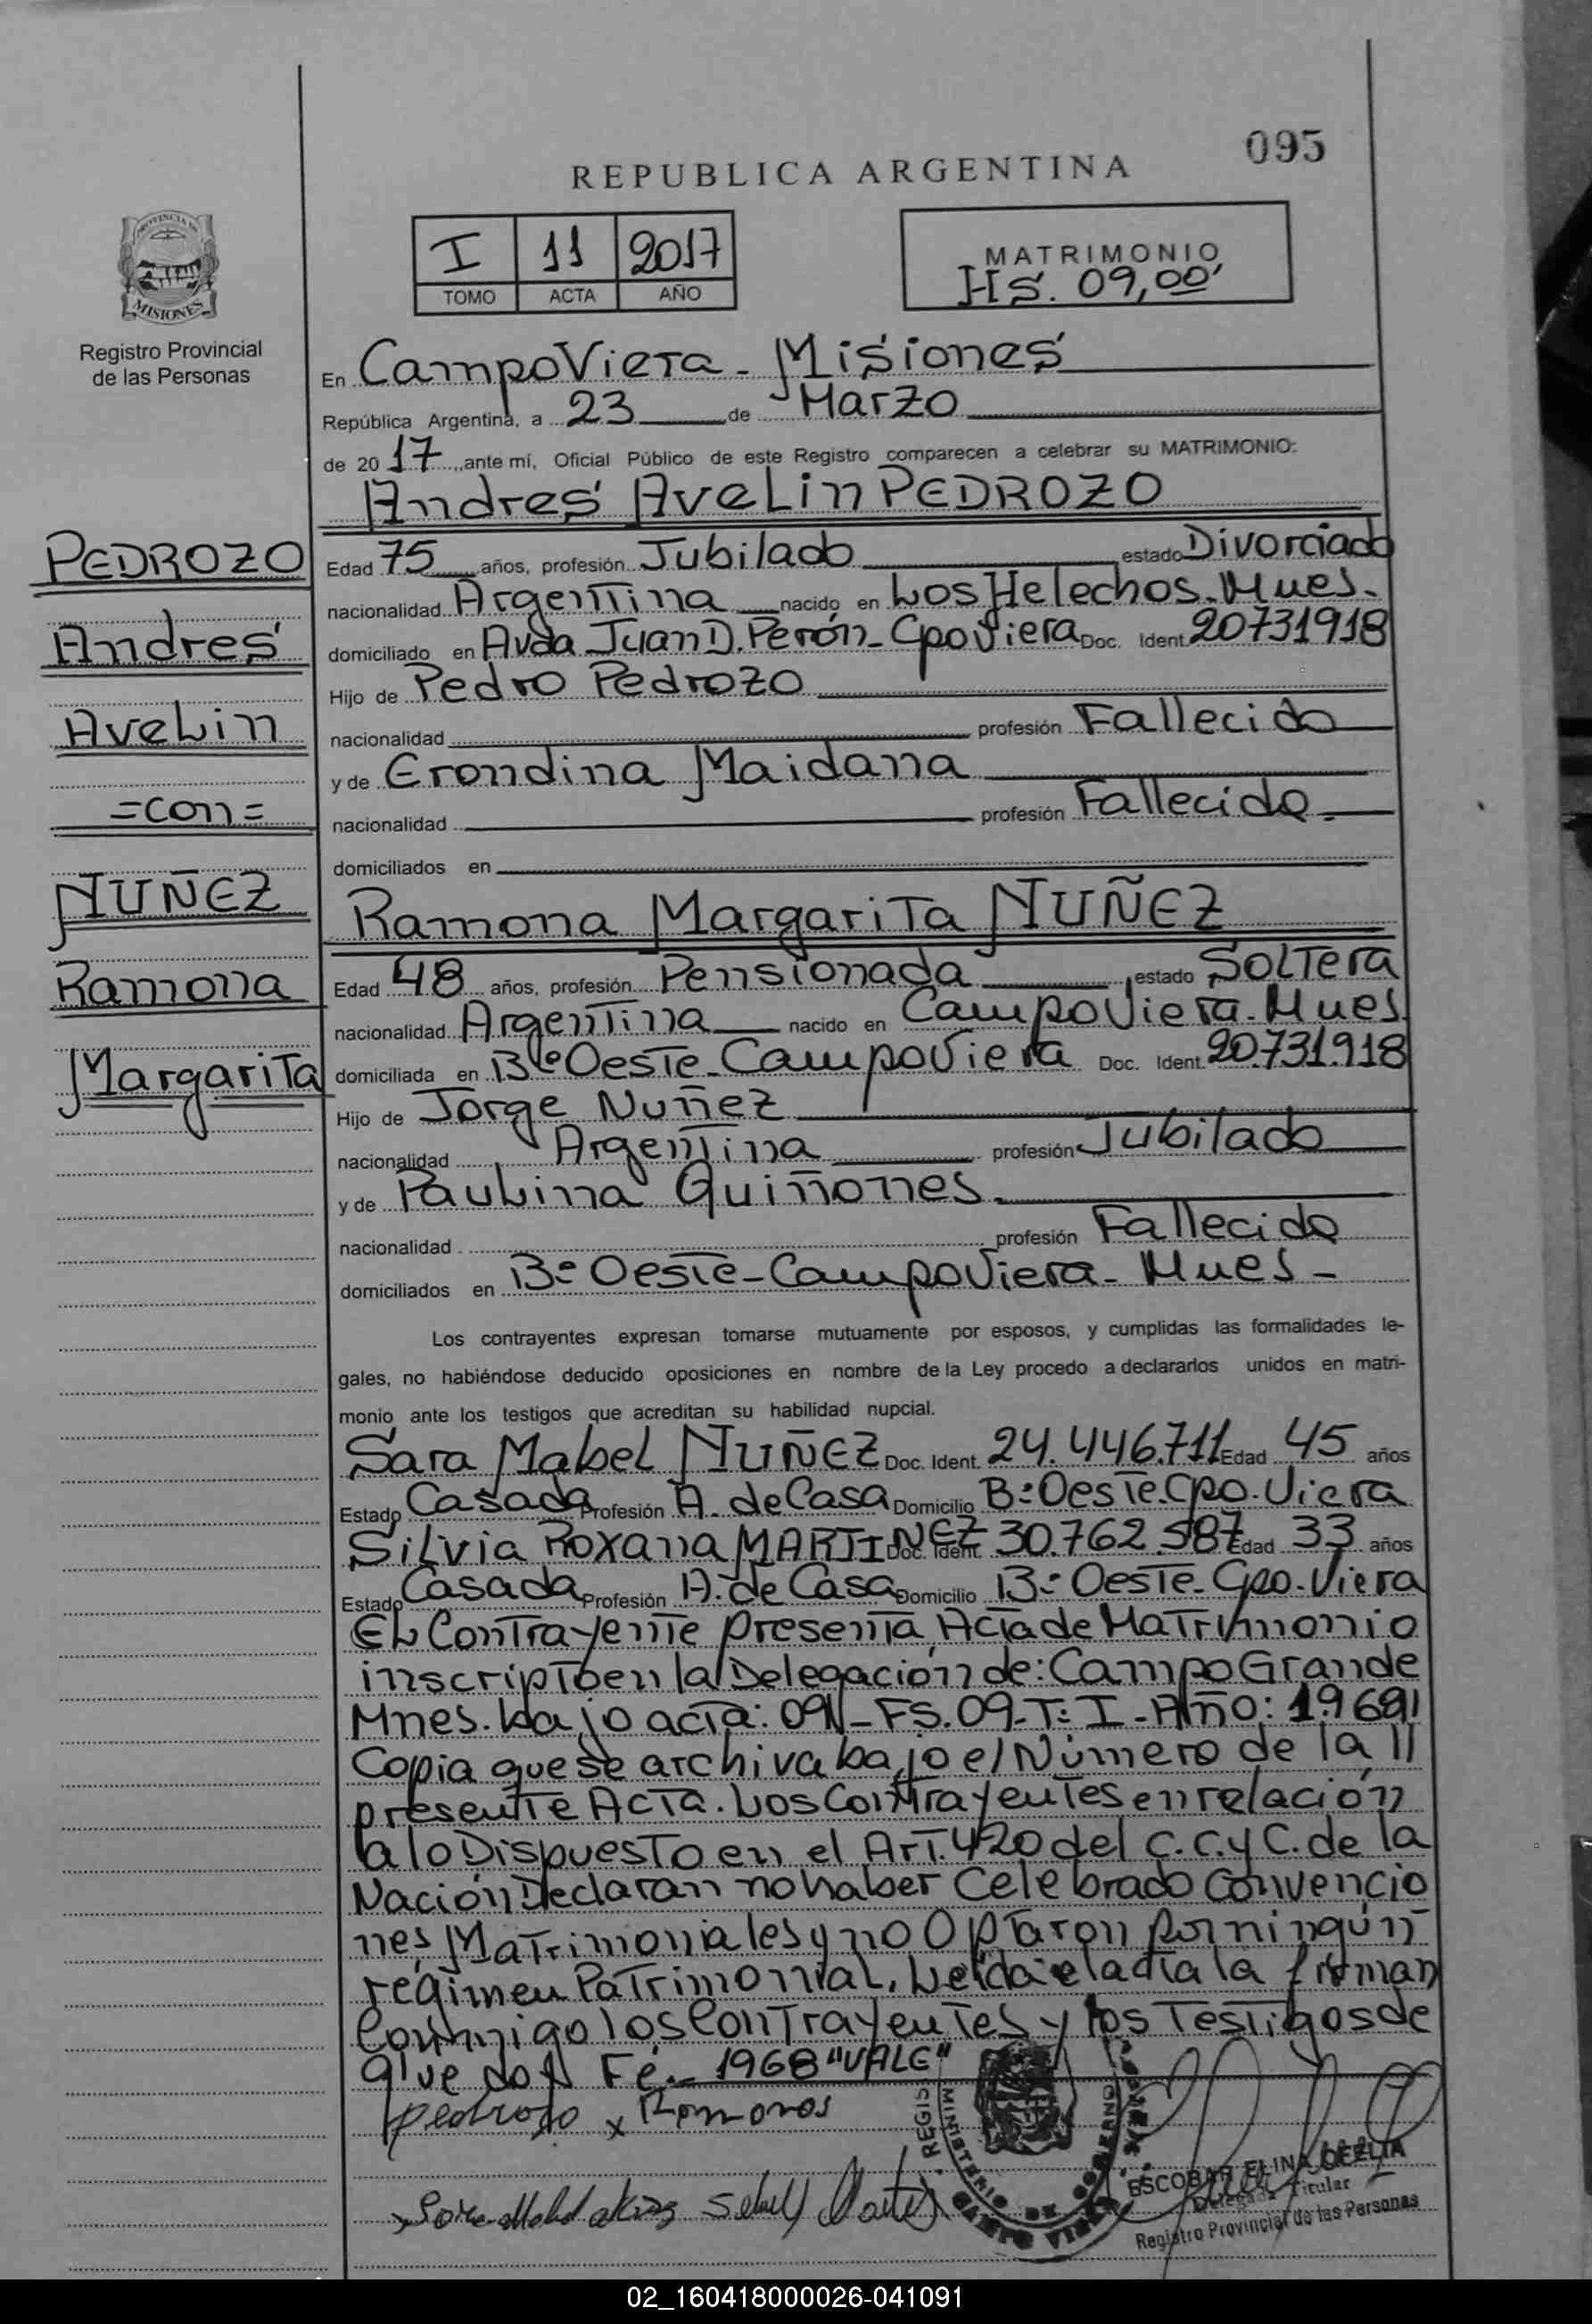 095
REPUBLICA ARGENTINA
PROVINCIA DE
MISIONES
Registro Provincial
de las Personas
I 11 2017
TOMO ACTA AÑO
MATRIMONIO
Hs. 09,00'
En CampoViera - Misiones
República Argentina, a 23 de Marzo
de 2017, ante mí, Oficial Público de este Registro comparecen a celebrar su MATRIMONIO:
Andres Avelin PEDROZO
PEDROZO
Andres
Avelin
=con=
NUÑEZ
Ramona
Margarita
Edad 75 años, profesión Jubilado estado Divorciado
nacionalidad Argentina nacido en Los Helechos - Mnes.
domiciliado en Avda Juan D. Perón - Cpo Viera Doc. Ident. 20731918
Hijo de Pedro Pedrozo
nacionalidad profesión Fallecido
y de Erondina Maidana
nacionalidad profesión Fallecida.
domiciliados en
Ramona Margarita NUÑEZ
Edad 48 años, profesión Pensionada estado Soltera
nacionalidad Argentina nacido en Campo Viera - Mnes.
domiciliada en Bº Oeste - Campo Viera Doc. Ident. 20.731.918
Hijo de Jorge Nuñez
nacionalidad Argentina profesión Jubilado
y de Paulina Quiñones.
nacionalidad profesión Fallecida
domiciliados en Bº Oeste - Campo Viera - Mnes -
Los contrayentes expresan tomarse mutuamente por esposos, y cumplidas las formalidades le-
gales, no habiéndose deducido oposiciones en nombre de la Ley procedo a declararlos unidos en matri-
monio ante los testigos que acreditan su habilidad nupcial.
Sara Mabel NUÑEZ Doc. Ident. 24.446.711 Edad 45 años
Estado Casada Profesión A. de Casa Domicilio Bº Oeste - Cpo. Viera
Silvia Roxana MARTINEZ Doc. Ident. 30.762.587 Edad 33 años
Estado Casada Profesión A. de Casa Domicilio Bº Oeste - Cpo. Viera
El Contrayente presenta Acta de Matrimonio
inscripto en la Delegación de: Campo Grande
Mnes. bajo acta: 09 - FS. 09 - T: I - Año:
Copia que se archiva bajo el Número de la //
presente Acta. Los Contrayentes en relación
a lo Dispuesto en el Art. 420 del C.C. y C. de la
Nación Declaran no haber Celebrado Convencio
nes Matrimoniales y no Optaron por ningún
régimen Patrimonial. Leída el acta la firman
Conmigo los Contrayentes y los Testigos de
que doy Fé.- 1968 "VALE"
Pedrozo x
ESCOBAR ELINA OFELIA
Delegada Titular
Registro Provincial de las Personas
02_160418000026-041091